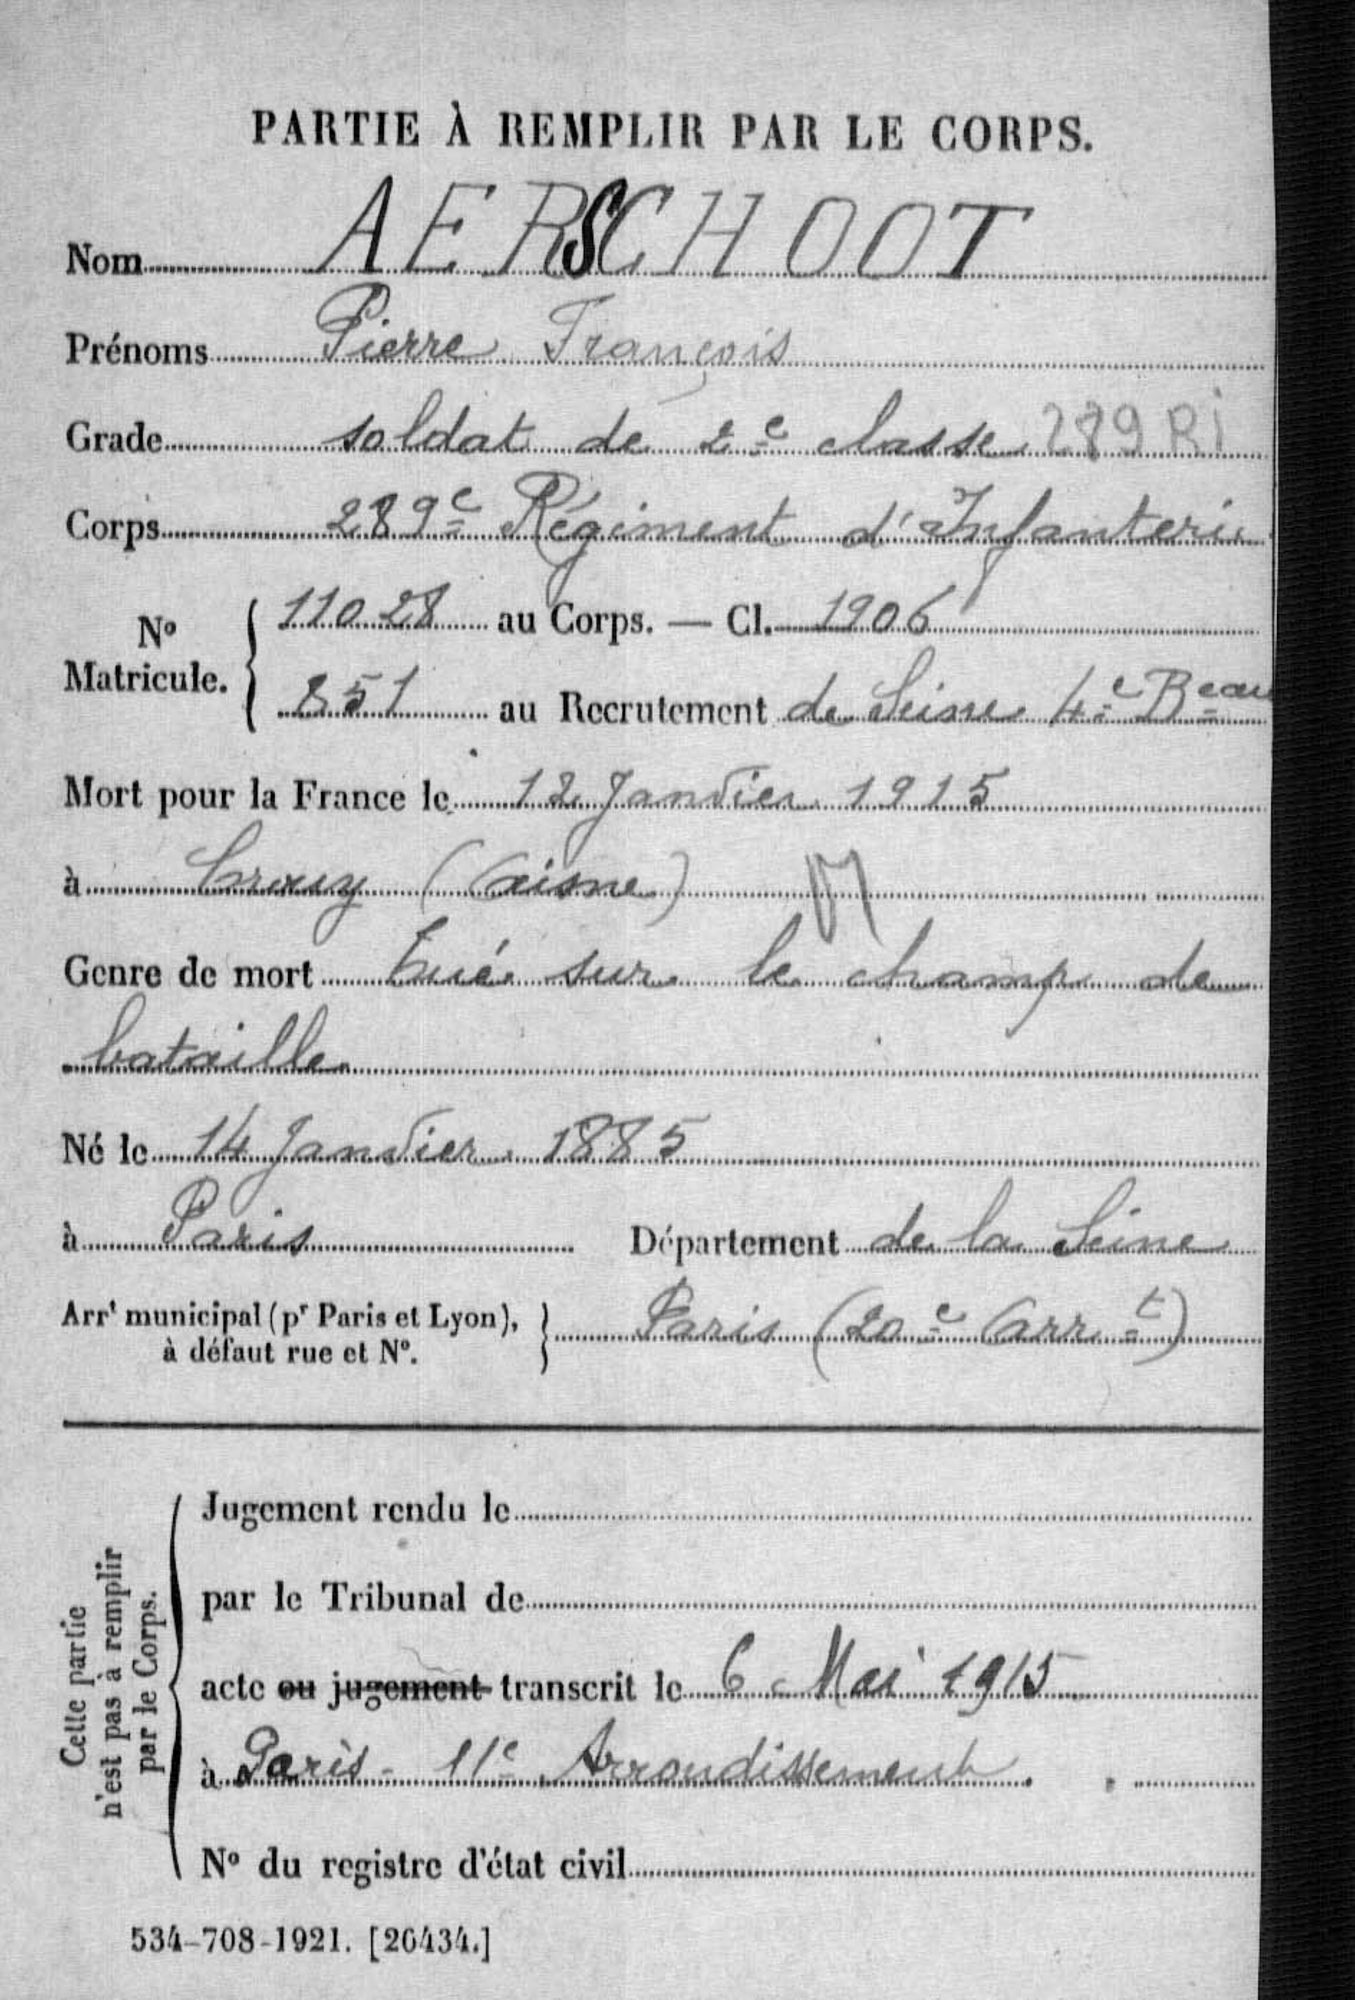 PARTIE À REMPLIR PAR LE CORPS.
Nom AERSCHOOT
Prénoms Pierre François
Grade soldat de 2e classe 289 RI
Corps 289e Régiment d'Infanterie
No Matricule. 11028 au Corps. — Cl. 1906
851 au Recrutement de Seine 4e Beau
Mort pour la France le 12 Janvier 1915
à Crouy (Aisne)
Genre de mort tué sur le champ de
bataille
Né le 14 Janvier 1885
à Paris Département de la Seine
Arrt municipal (pr Paris et Lyon),
à défaut rue et No. Paris (20e Arrt)
Jugement rendu le
par le Tribunal de
acte ou jugement transcrit le 6 Mai 1915
à Paris - 11e Arrondissement.
No du registre d'état civil
Cette partie
n'est pas à remplir
par le Corps.
534-708-1921. [26434.]